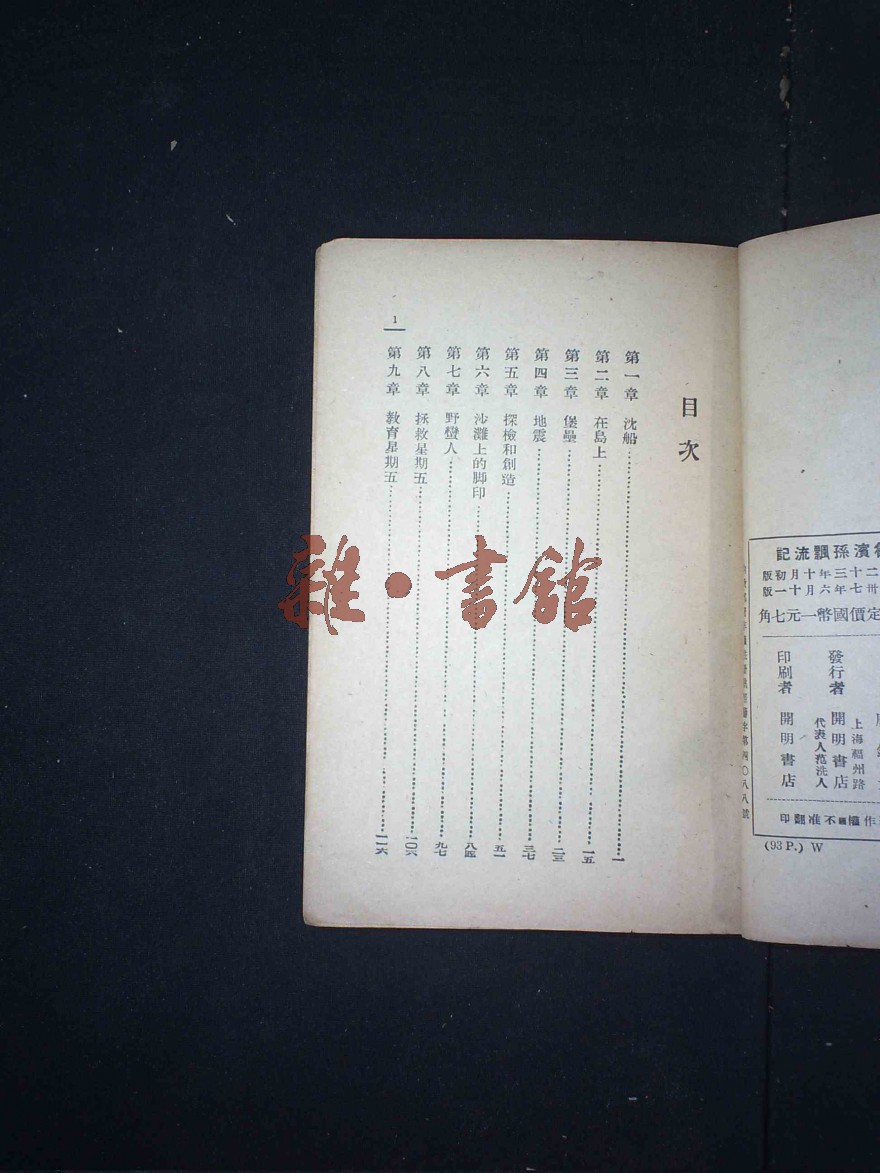 目次
第一章 沈船 一
第二章 在島上 一五
第三章 堡壘 二三
第四章 地震 三七
第五章 探檢和創造 五一
第六章 沙灘上的脚印 八四
第七章 野蠻人 九七
第八章 拯救星期五 一〇六
第九章 教育星期五 一一六
1
雜·書館
濱孫飄流記
二十三年十月初版
卅七年六月十一版
定價國幣一元七角
上海福州路
發行者 開明書店
代表人范洗人
印刷者 開明書店
作權不准翻印
(93 P.) W
字第四〇八八號